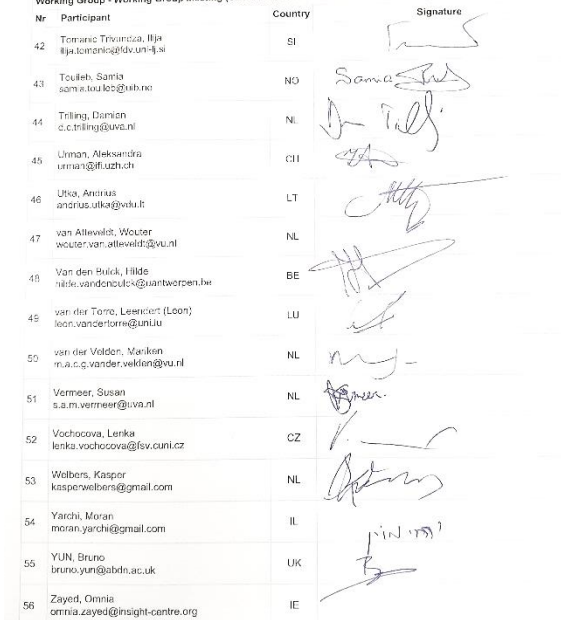 Working Group - Working Group Meeting
Nr Participant Country Signature
42 Tomanić Trivundža, Ilija SI
ilija.tomanic@fdv.uni-lj.si
43 Touileb, Samia NO Samia
samia.touileb@uib.no
44 Trilling, Damian NL
d.c.trilling@uva.nl
45 Urman, Aleksandra CH
urman@ifi.uzh.ch
46 Utka, Andrius LT
andrius.utka@vdu.lt
47 van Atteveldt, Wouter NL
wouter.van.atteveldt@vu.nl
48 Van den Bulck, Hilde BE
hilde.vandenbulck@uantwerpen.be
49 van der Torre, Leendert (Leon) LU
leon.vandertorre@uni.lu
50 van der Velden, Mariken NL
m.a.c.g.vander.velden@vu.nl
51 Vermeer, Susan NL
s.a.m.vermeer@uva.nl
52 Vochocova, Lenka CZ
lenka.vochocova@fsv.cuni.cz
53 Welbers, Kasper NL
kasperwelbers@gmail.com
54 Yarchi, Moran IL
moran.yarchi@gmail.com
55 YUN, Bruno UK
bruno.yun@abdn.ac.uk
56 Zayed, Omnia IE
omnia.zayed@insight-centre.org